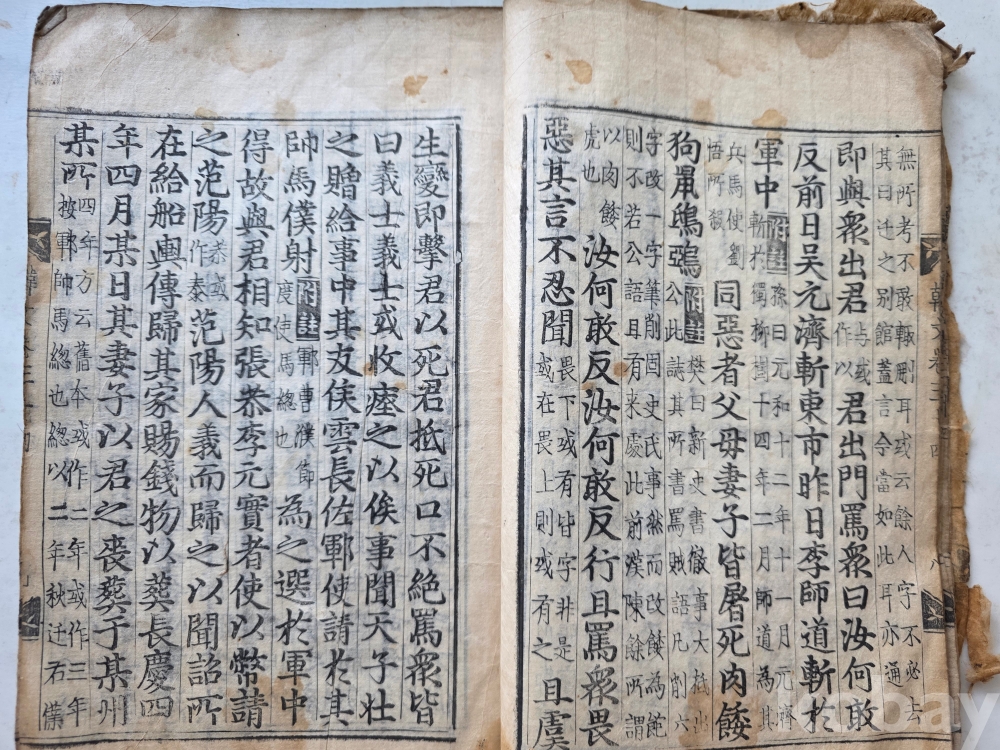 無所考不敢輒刪耳或云餘人字不必去
其曰迁之别館蓋言今當如此耳亦通
即與衆出君与或作以君出門罵衆曰汝何敢
反前日吳元濟斬東市昨日李師道斬於
軍中附註孫曰元和十二年十一月元濟斬於獨柳樹十四年二月師道為其
兵馬使劉悟所殺同惡者父母妻子皆屠死肉餧
狗鼠鴟鴉附註樊曰新史書徹事大抵出公此誌其所書罵賊語凡削六
字改一字筆削固史氏事然而改餧為飽則不若公語且有来處此前漢陳餘所謂
以肉餧虎也汝何敢反汝何敢反行且罵衆畏
惡其言不忍聞畏下或有皆字非是或在畏上則或有之且虞
生變即擊君以死君抵死口不絶罵衆皆
曰義士義士或收瘞之以俟事聞天子壯
之贈給事中其友侯雲長佐鄆使請於其
帥馬僕射附註鄆曹濮節度使馬總也為之選於軍中
得故與君相知張恭李元實者使以幣請
之范陽恭或作泰范陽人義而歸之以聞詔所
在給船轝傳歸其家賜錢物以葬長慶四
年四月某日其妻子以君之喪葬于某州
某所四年方云舊本或作二年或作三年按鄆帥馬總也總以二年秋迁右僕